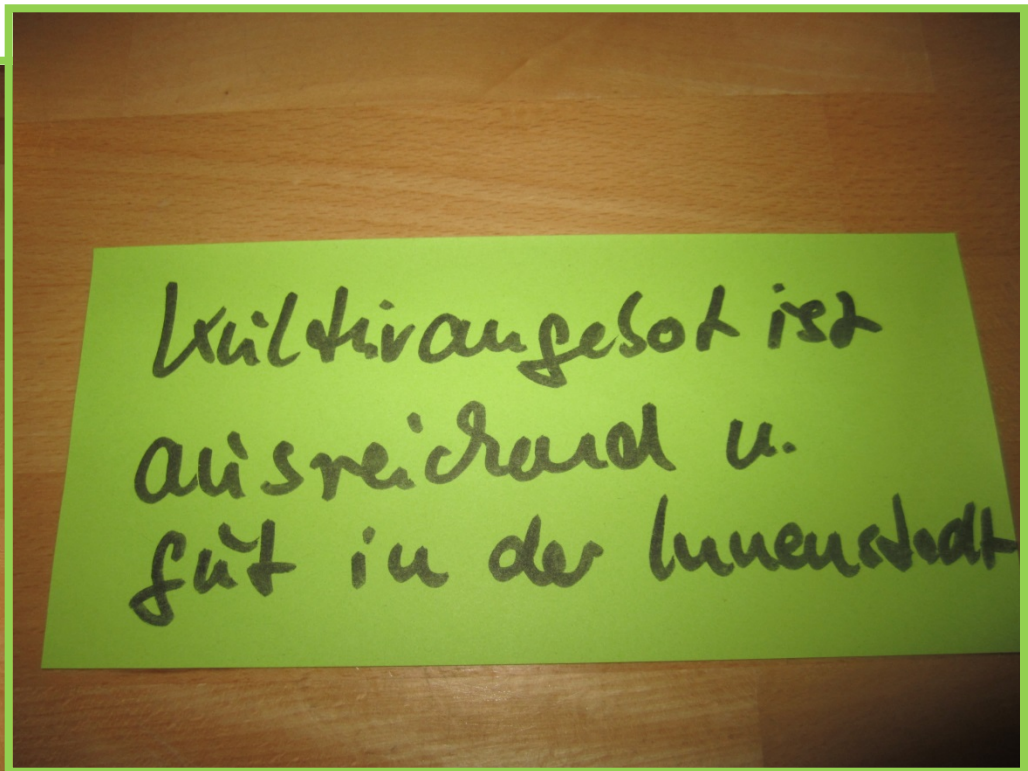 Kulturangebot ist
ausreichend u.
gut in der Innenstadt